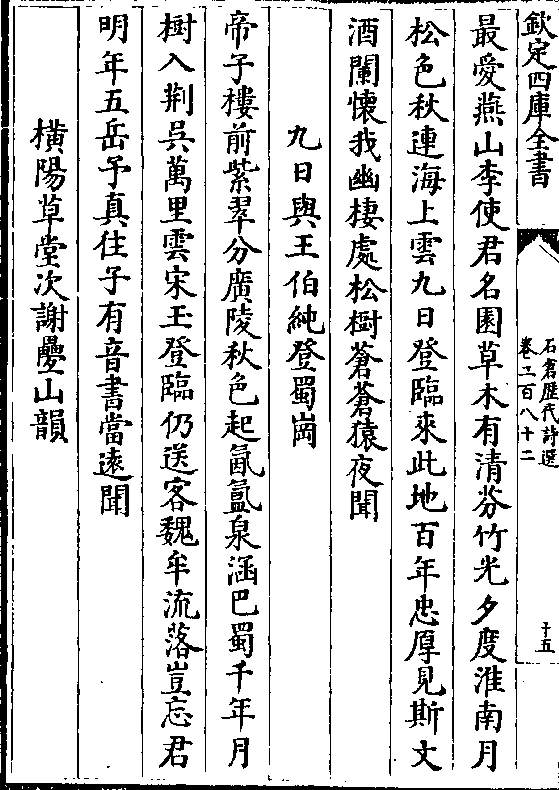 欽定四庫全書
石倉歷代詩選
卷二百八十二
十五
最愛燕山李使君名園草木有清芬竹光夕度淮南月
松色秋連海上雲九日登臨來此地百年忠厚見斯文
酒闌懷我幽棲處松樹蒼蒼猿夜聞
九日與王伯純登蜀崗
帝子樓前紫翠分廣陵秋色起氤氳泉涵巴蜀千年月
樹入荆吳萬里雲宋玉登臨仍送客魏牟流落豈忘君
明年五岳予真住子有音書當遠聞
橫陽草堂次謝疊山韻